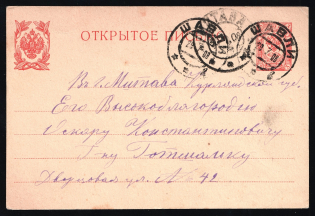 ОТКРЫТОЕ ПИСЬМО
ШАВЛИ
ШАВЛИ
Въ г. Митава Курляндской губ.
Его Высокоблагородію
Оскару Константиновичу
Г-ну Готшалку
Дворцовая ул. № 42